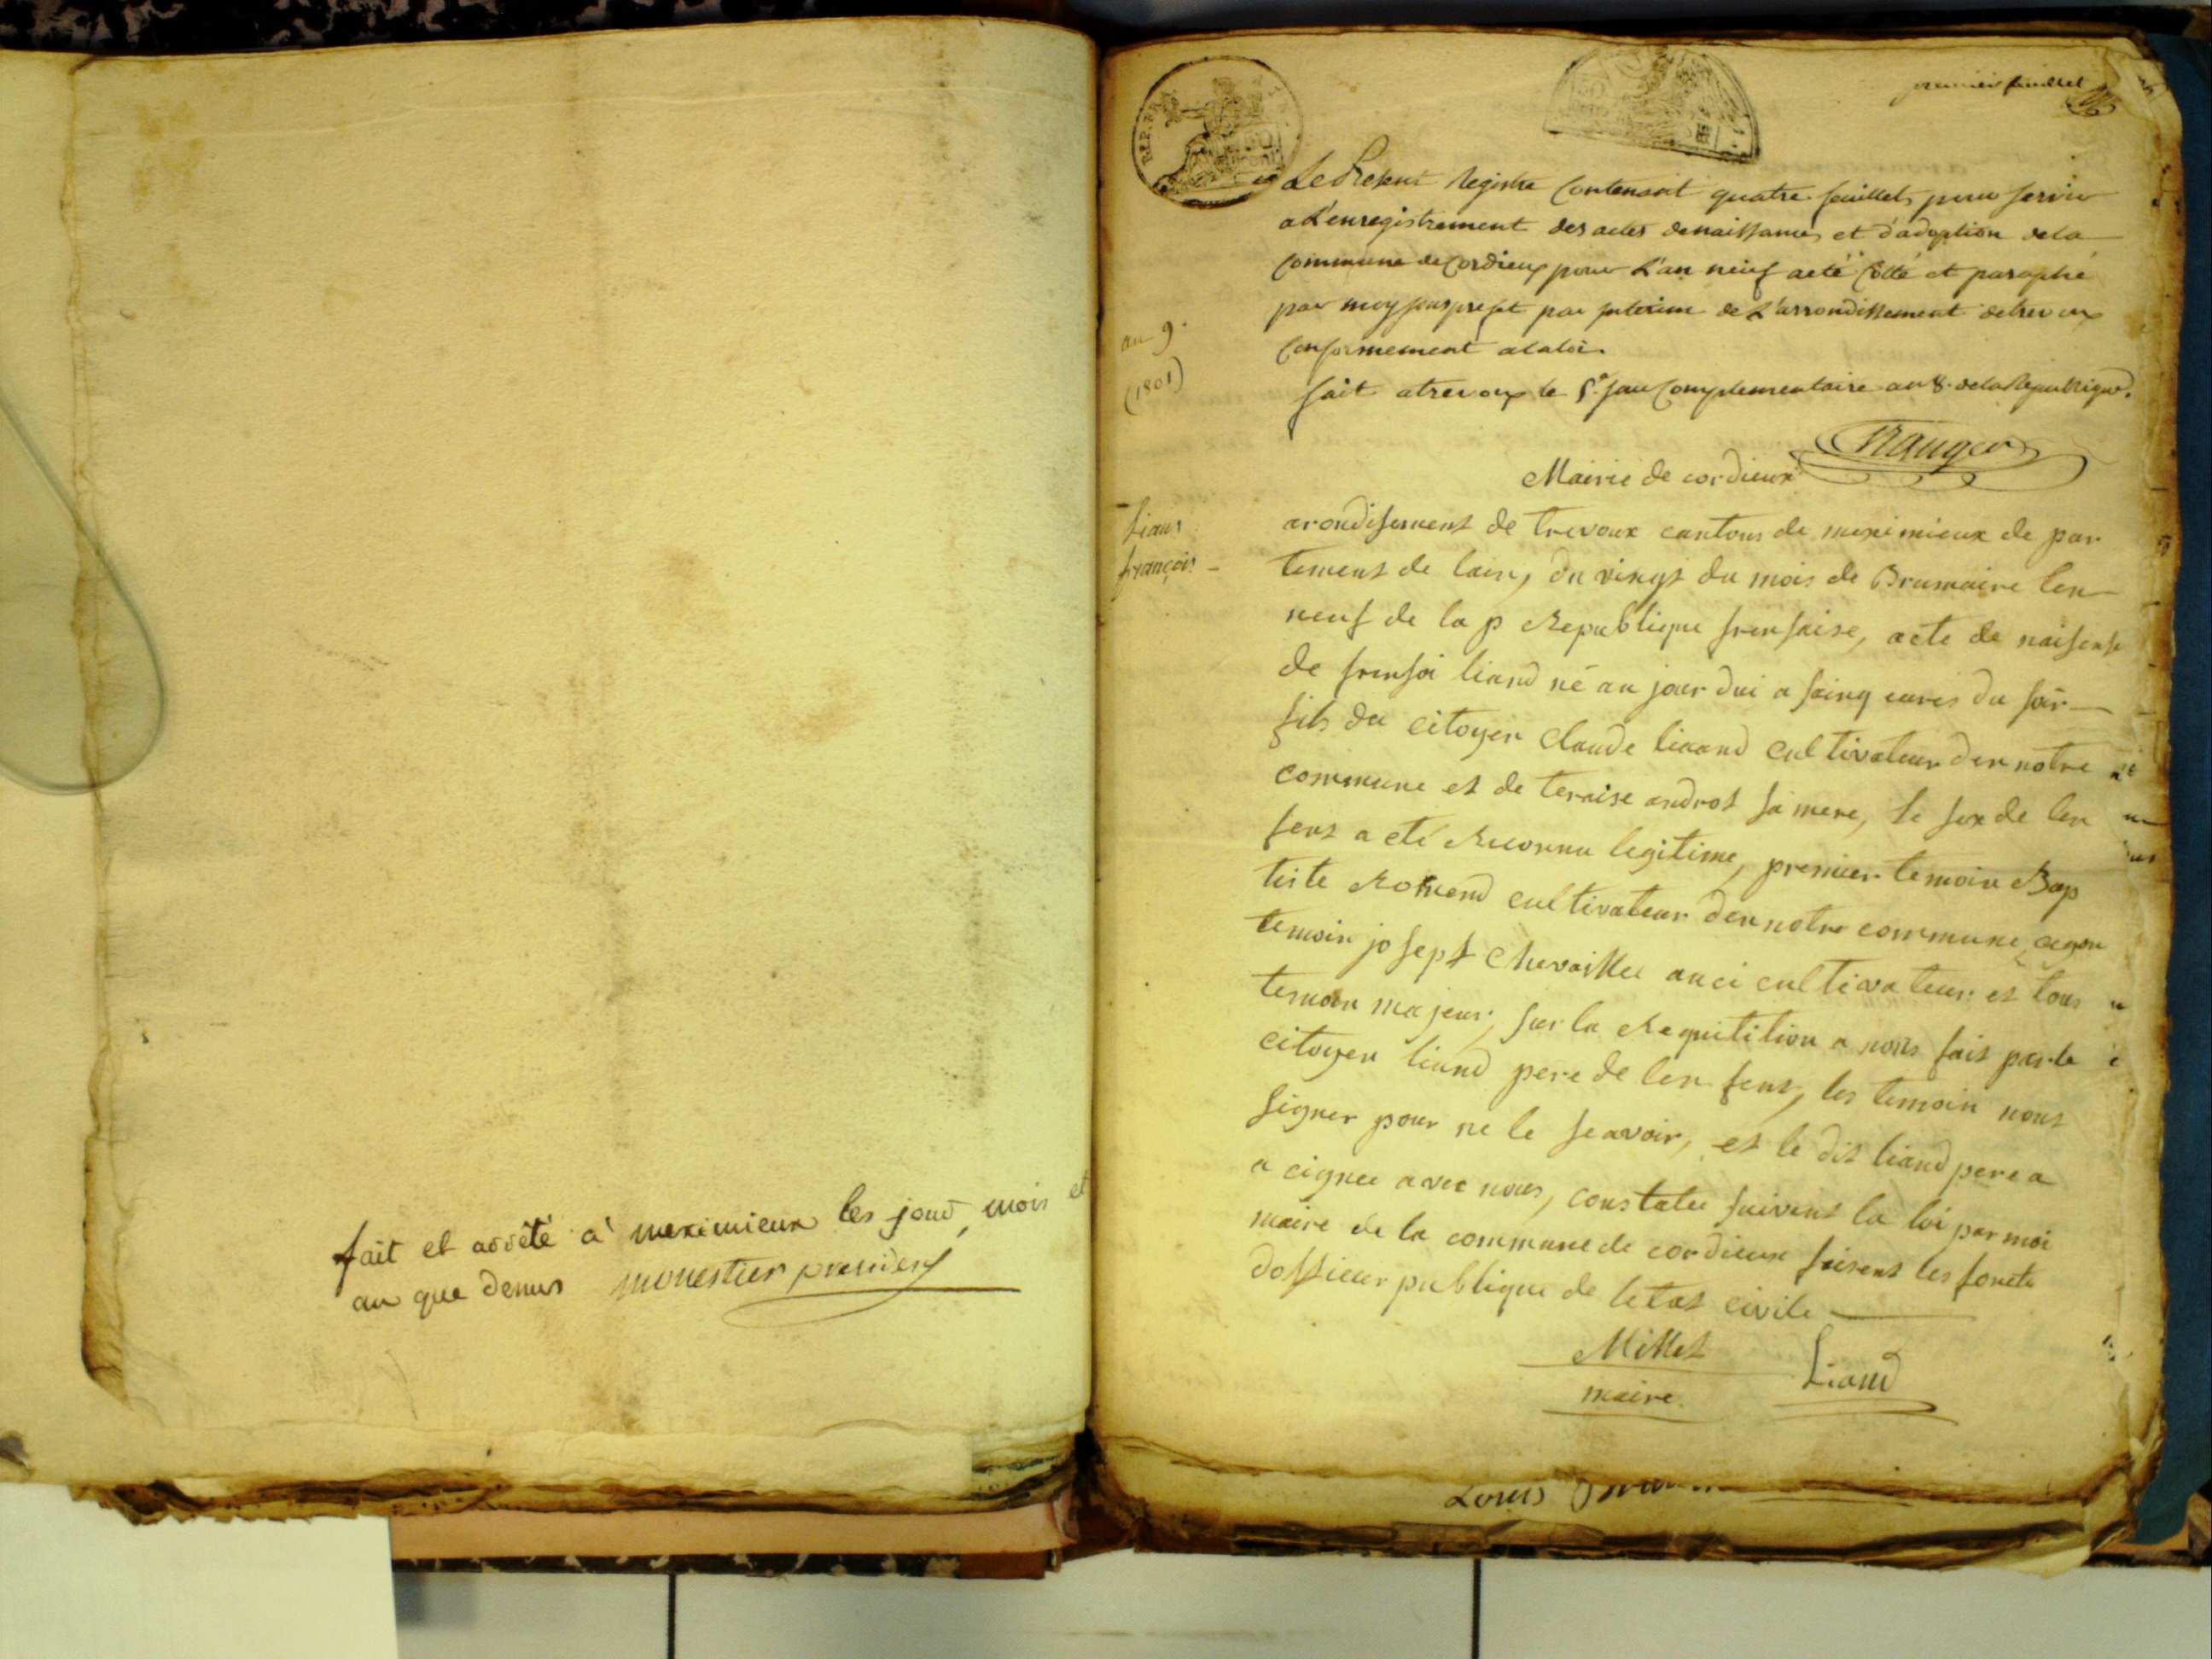 fait et arrêté à meximieux les jour, mois et
an que denus monestier president
REP. FRA.
premier feuillet
Le Present Registre Contenant quatre feuillets pour servir
a L'enregistrement des actes denaissances et d'adoption dela
Commune de Cordieux pour L'an neuf aeté Cotté et paraphé
par moy sousprefet par interim de L'arrondissement detrevoux
Conformement alaloi.
fait atrevoux le 5.e jour Complementaire an 8. dela Republique.
an 9.
(1801)
Mairie de cordieux
Liaud
françois -
arondisement de trevoux cantons de meximieux de par
tement de lain, du vingt du mois de Brumaire len
neuf de la p Republique frensaise, acte de naisense
de frensoi liand né au jour dui a sainq eures du soir
fils du citoyen Claude liaand cultivateur den notre
commune et de teraise androt sa mere, le sex de len
fent a eté Reconnu legitime, premier temoin Bap
tiste Romend cultivateur den notre commune, cegon
temoin josept Chevaillee auci cultivateur et tous
temoin majeur, sur la Requitition a nous fait par le
citoyen liand pere de len fent, les temoin nont
signer pour ne le seavoir, et le dit liand pere a
a cignee avec nous, constatee suivent la loi par moi
maire de la commune de cordieux faisent les foncti
dofficier publique de letat civile
Millet Liand
maire
Louis